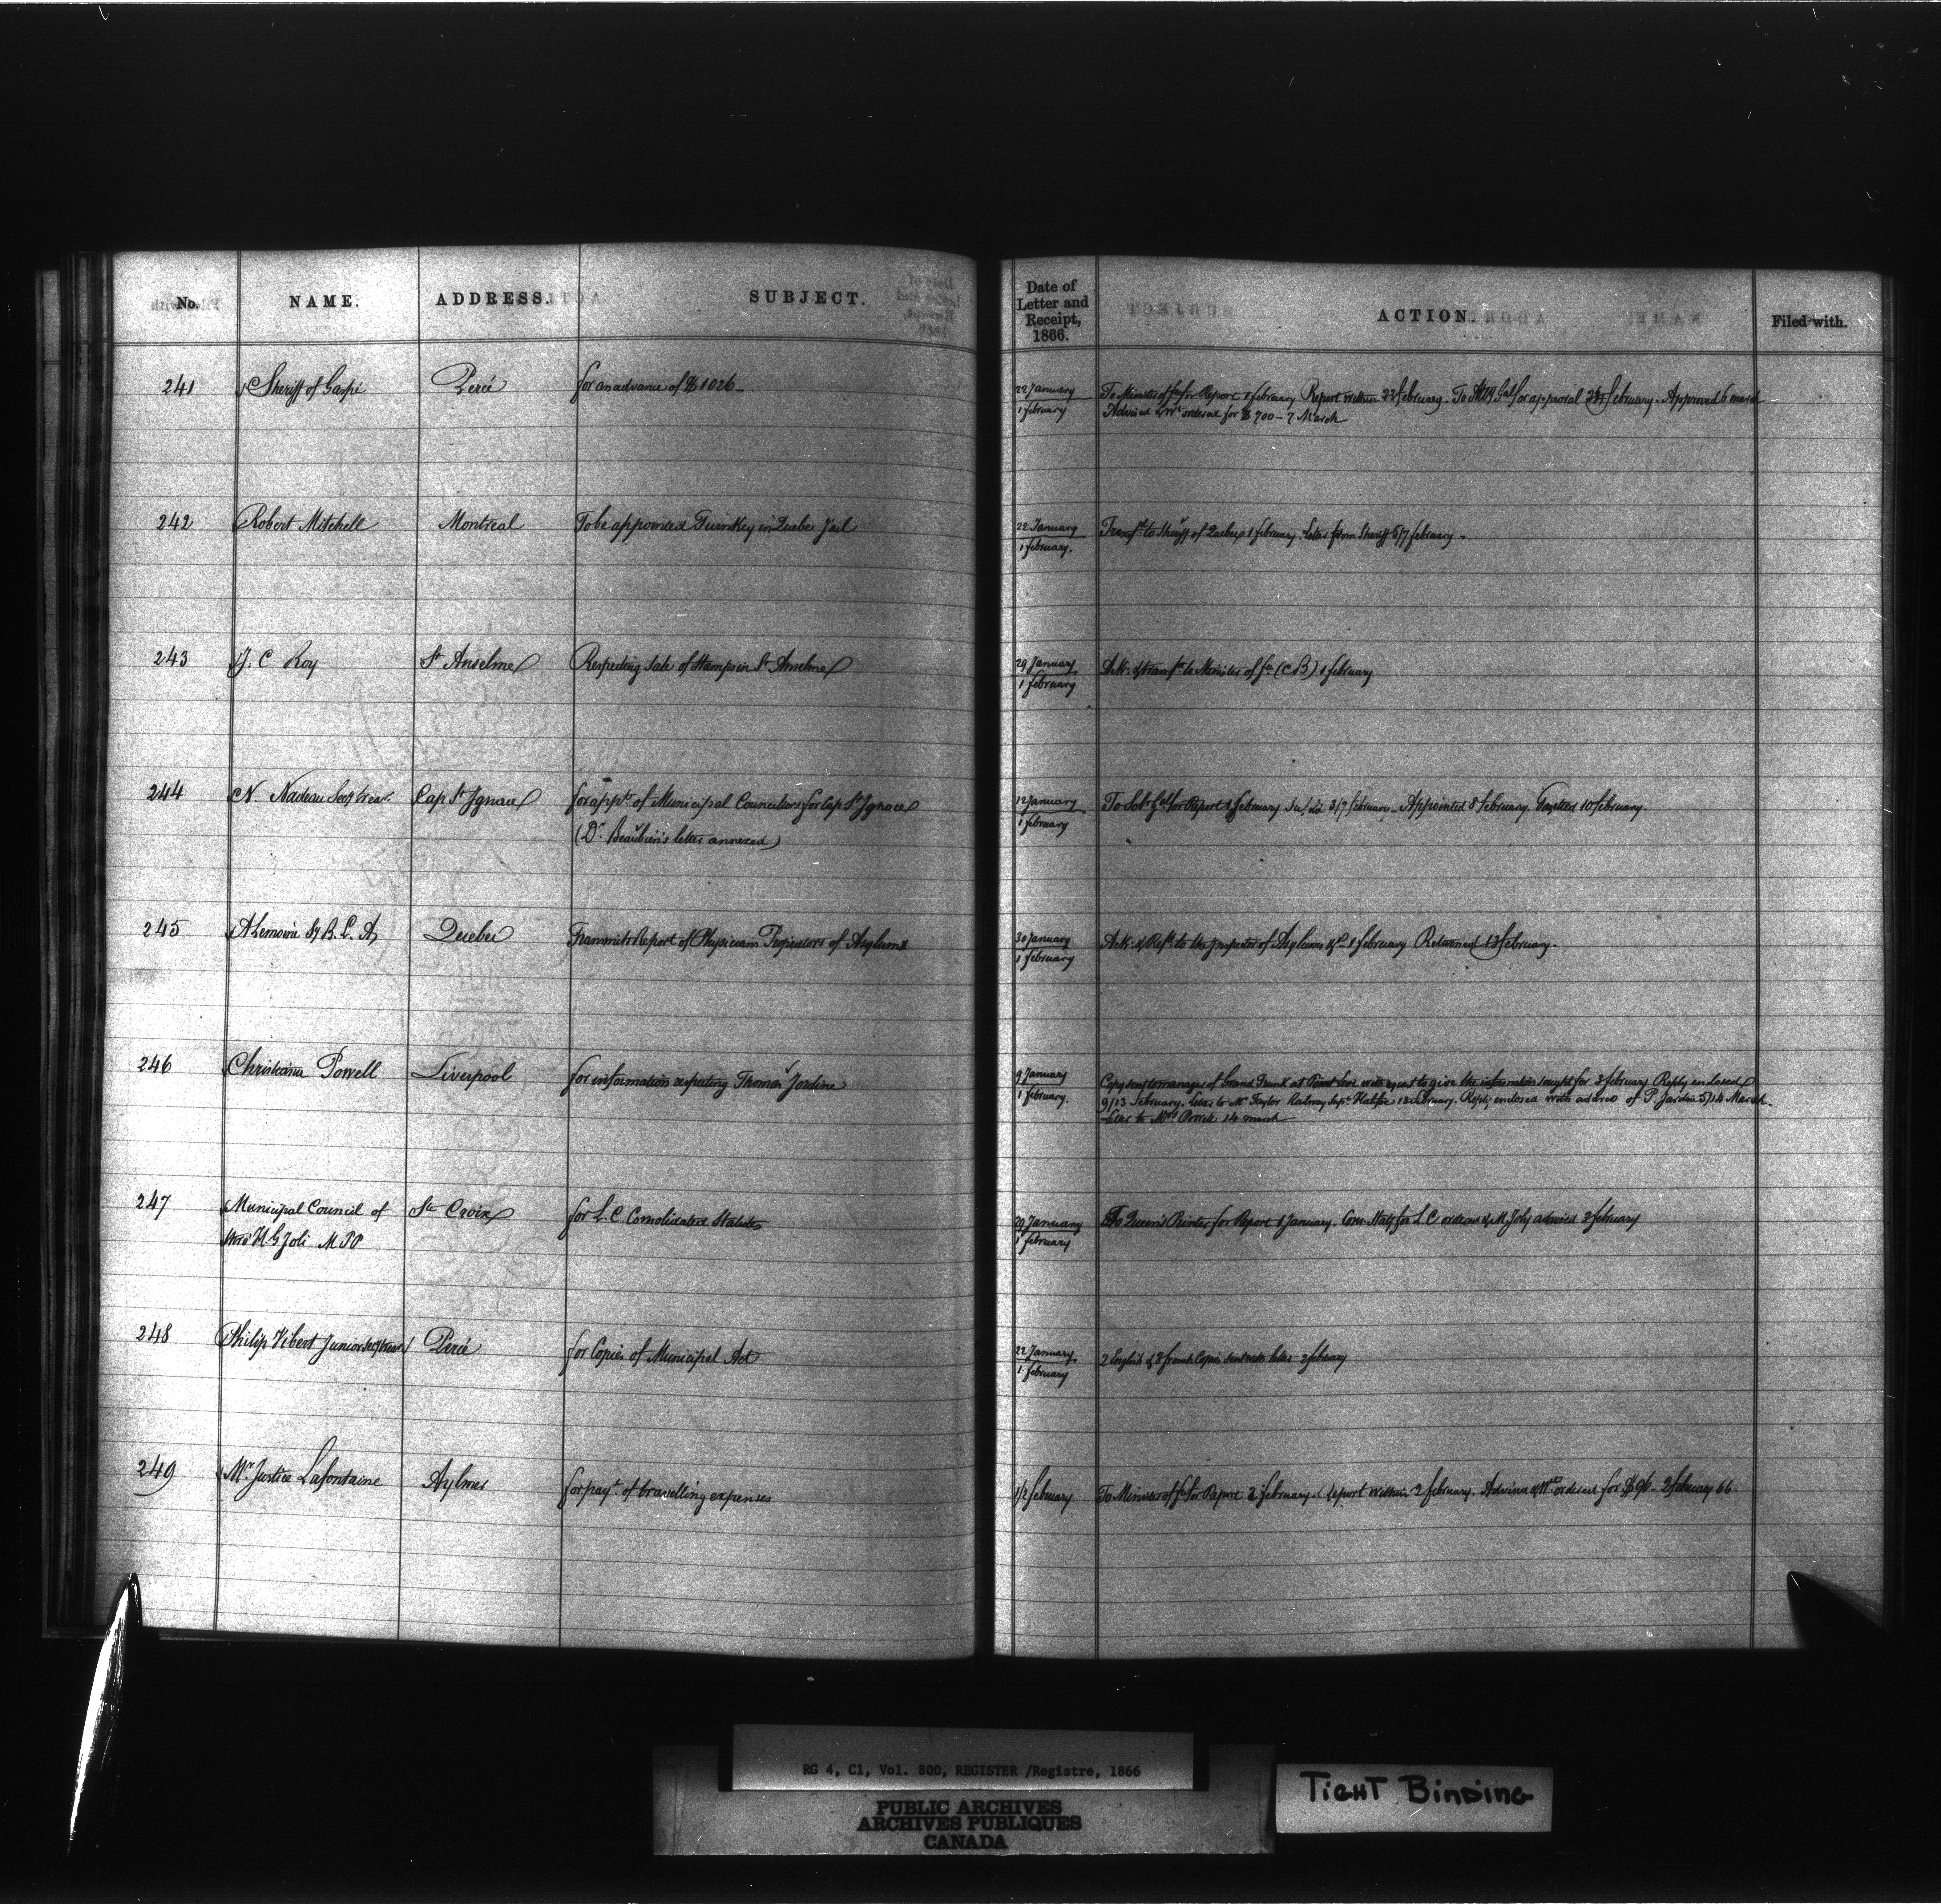 No. NAME. ADDRESS. SUBJECT. Date of Letter and Receipt, 1866. ACTION. Filed with.
241 Sheriff of Gaspé Percé for an advance of $1026 22 January
1 February To Minister of fce for Report 1 february Report within 22 february. To Atty Gal for approval 23 february. Approved 6 march
Advised & Wt ordered for $700 - 7 March
242 Robert Mitchell Montreal To be appointed Turnkey in Quebec Jail 22 January
1 february. Transfd to Sheriff of Quebec 1 february. Letter from Sheriff 5/7 february.
243 J. C Roy St Anselme Respecting Sale of Stamps in St Anselme 29 January
1 february Ack: & transfd to Minister of fce (C B) 1 february
244 N. Nadeau Secy Treasr. Cap St Ignace for appt of Municipal Councillors for Cap St Ignace 12 January
1 february To Solr Gal for Report 1 february 3/7 february. Appointed 8 february. Gazetted 10 february.
(Dr Beaubien's letter annexed)
245 A Lemoine Sy B. L. A, Quebec Transmits Report of Physician Proprietors of Asylums 30 January
1 february Ack: & Refd to the Inspector of Asylums &c 1 february Returned 13 february.
246 Christiana Powell Liverpool for information respecting Thomas Jardine 9 January
1 february. Copy sent to manager of Grand Trunk at Point Levi with request to give the information sought for 3 february Reply enclosed
9/13 february. Letter to Mr Taylor Railway Supt Halifax 13 february. Reply enclosed with address of P. Jardine 5/14 March.
Letter to Mrs Powell 14 march
247 Municipal Council of Ste Croix for L. C Consolidated Statutes 29 January
1 february To Queen's Printer for Report 1 January. Con: Stats for L. C ordered & M. Joly advised 3 february
H G Joli M P P
248 Philip Vibert Junior Secy Treasr Percé for Copies of Municipal Act 22 January
1 february 2 English & 3 french Copies sent with letter 2 february
249 Mr Justice Lafontaine Aylmer for payt of travelling expenses 1/2 february To Minister of fce for Report 2 february. Report within 2 february. Advised & Wt ordered for $96 - 2 february 66
RG 4, C1, Vol. 800, REGISTER /Registre, 1866
PUBLIC ARCHIVES
ARCHIVES PUBLIQUES
CANADA
TIGHT BINDING